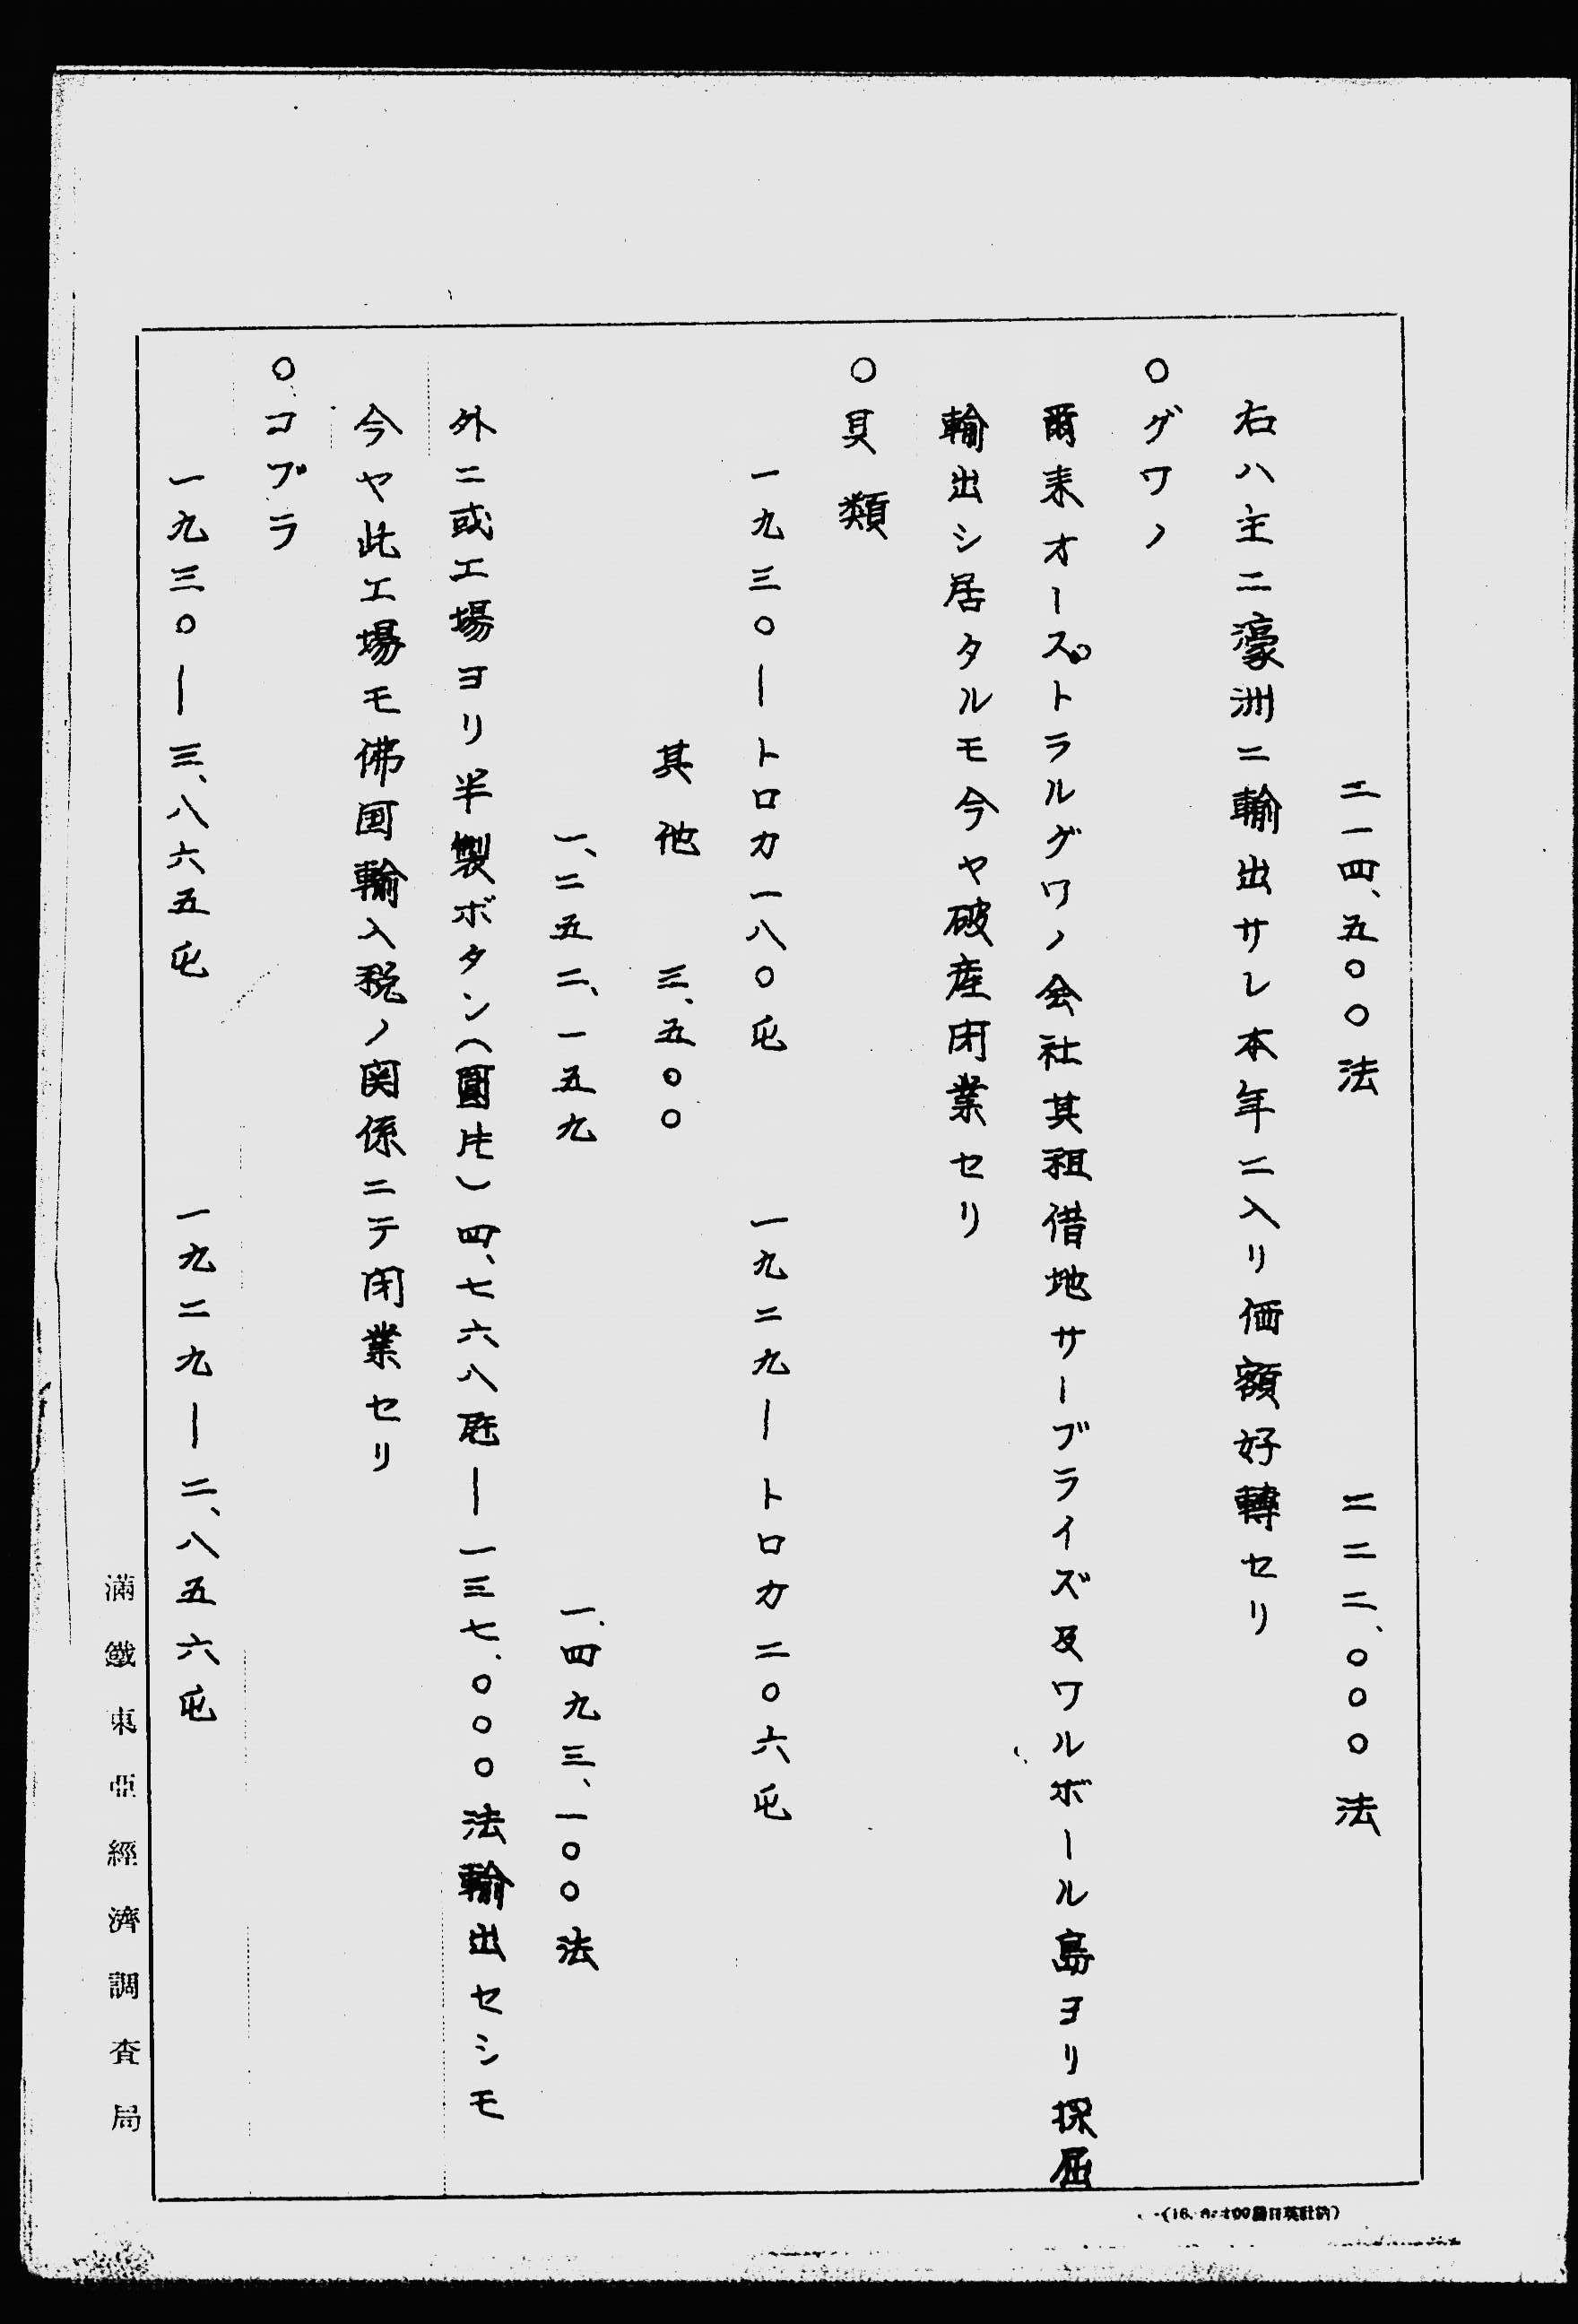 二一四、五〇〇法　二二二、〇〇〇法
右ハ主ニ濠洲ニ輸出サレ本年ニ入リ価額好轉セリ
〇グワノ
爾来オーストラルグワノ会社其租借地サーブライズ及ワルボール島ヨリ採屈
輸出シ居タルモ今ヤ破産閉業セリ
〇貝類
一九三〇―トロカ一八〇屯　一九二九―トロカ二〇六屯
其他　三、五〇〇
一、二五二、一五九　一、四九三、一〇〇法
外ニ或工場ヨリ半製ボタン（圓片）四、七六八瓩―一三七、〇〇〇法輸出セシモ
今ヤ此工場モ佛国輸入税ノ関係ニテ閉業セリ
〇コプラ
一九三〇―三、八六五屯　一九二九―二、八五六屯
滿鐵東亞經濟調査局